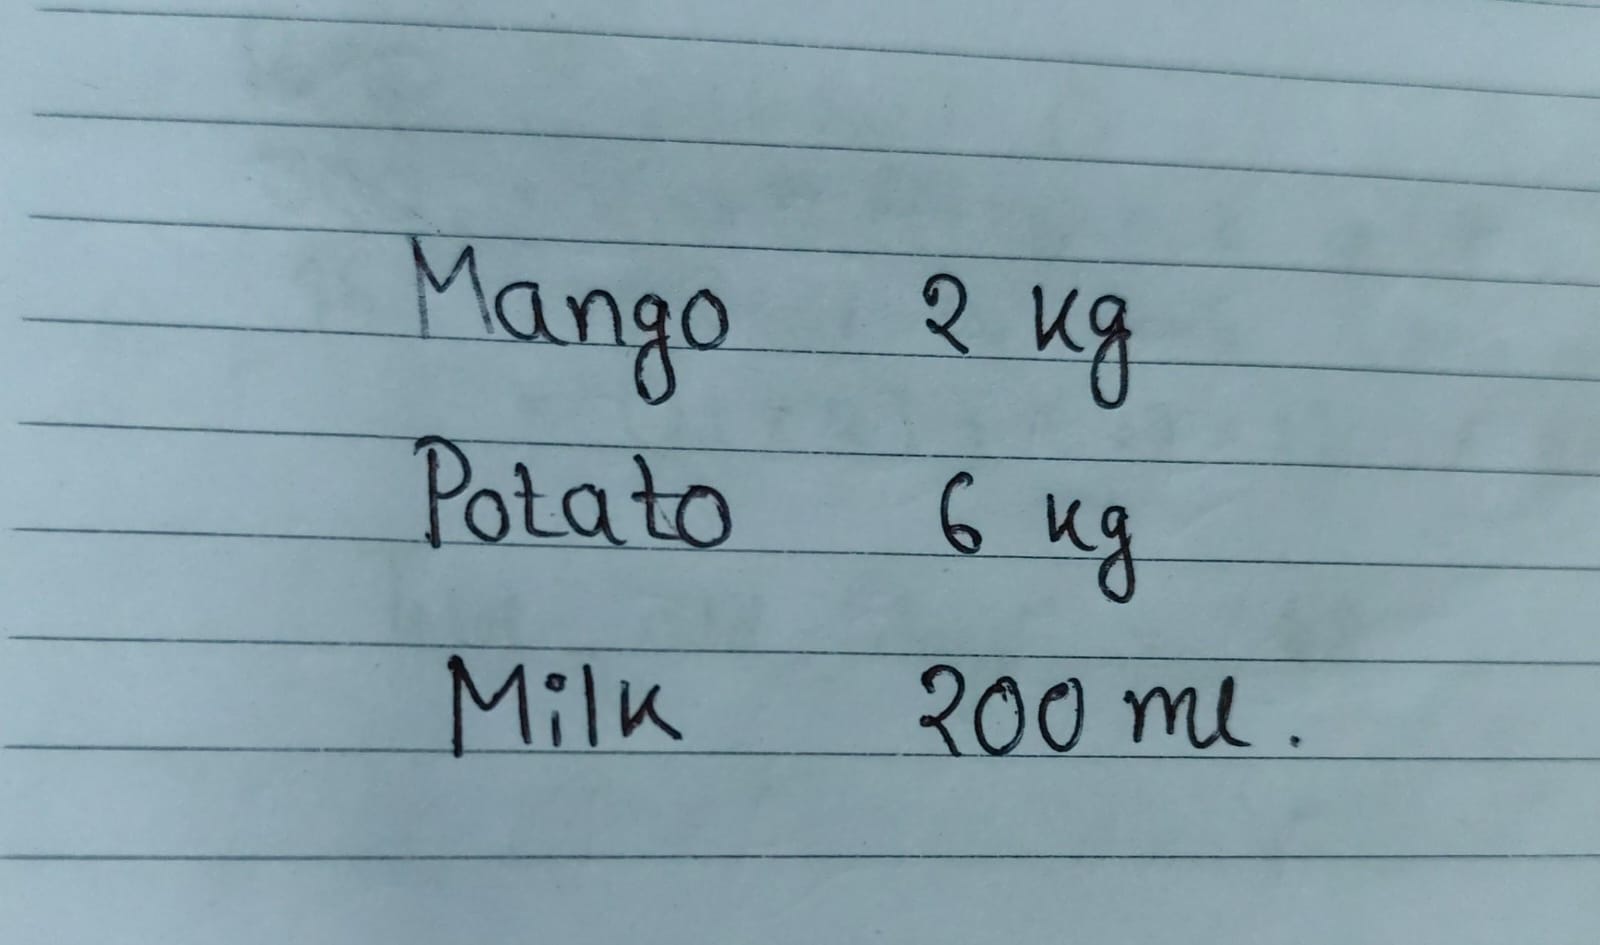 Mango 2 kg
Potato 6 kg
Milk 200 ml.